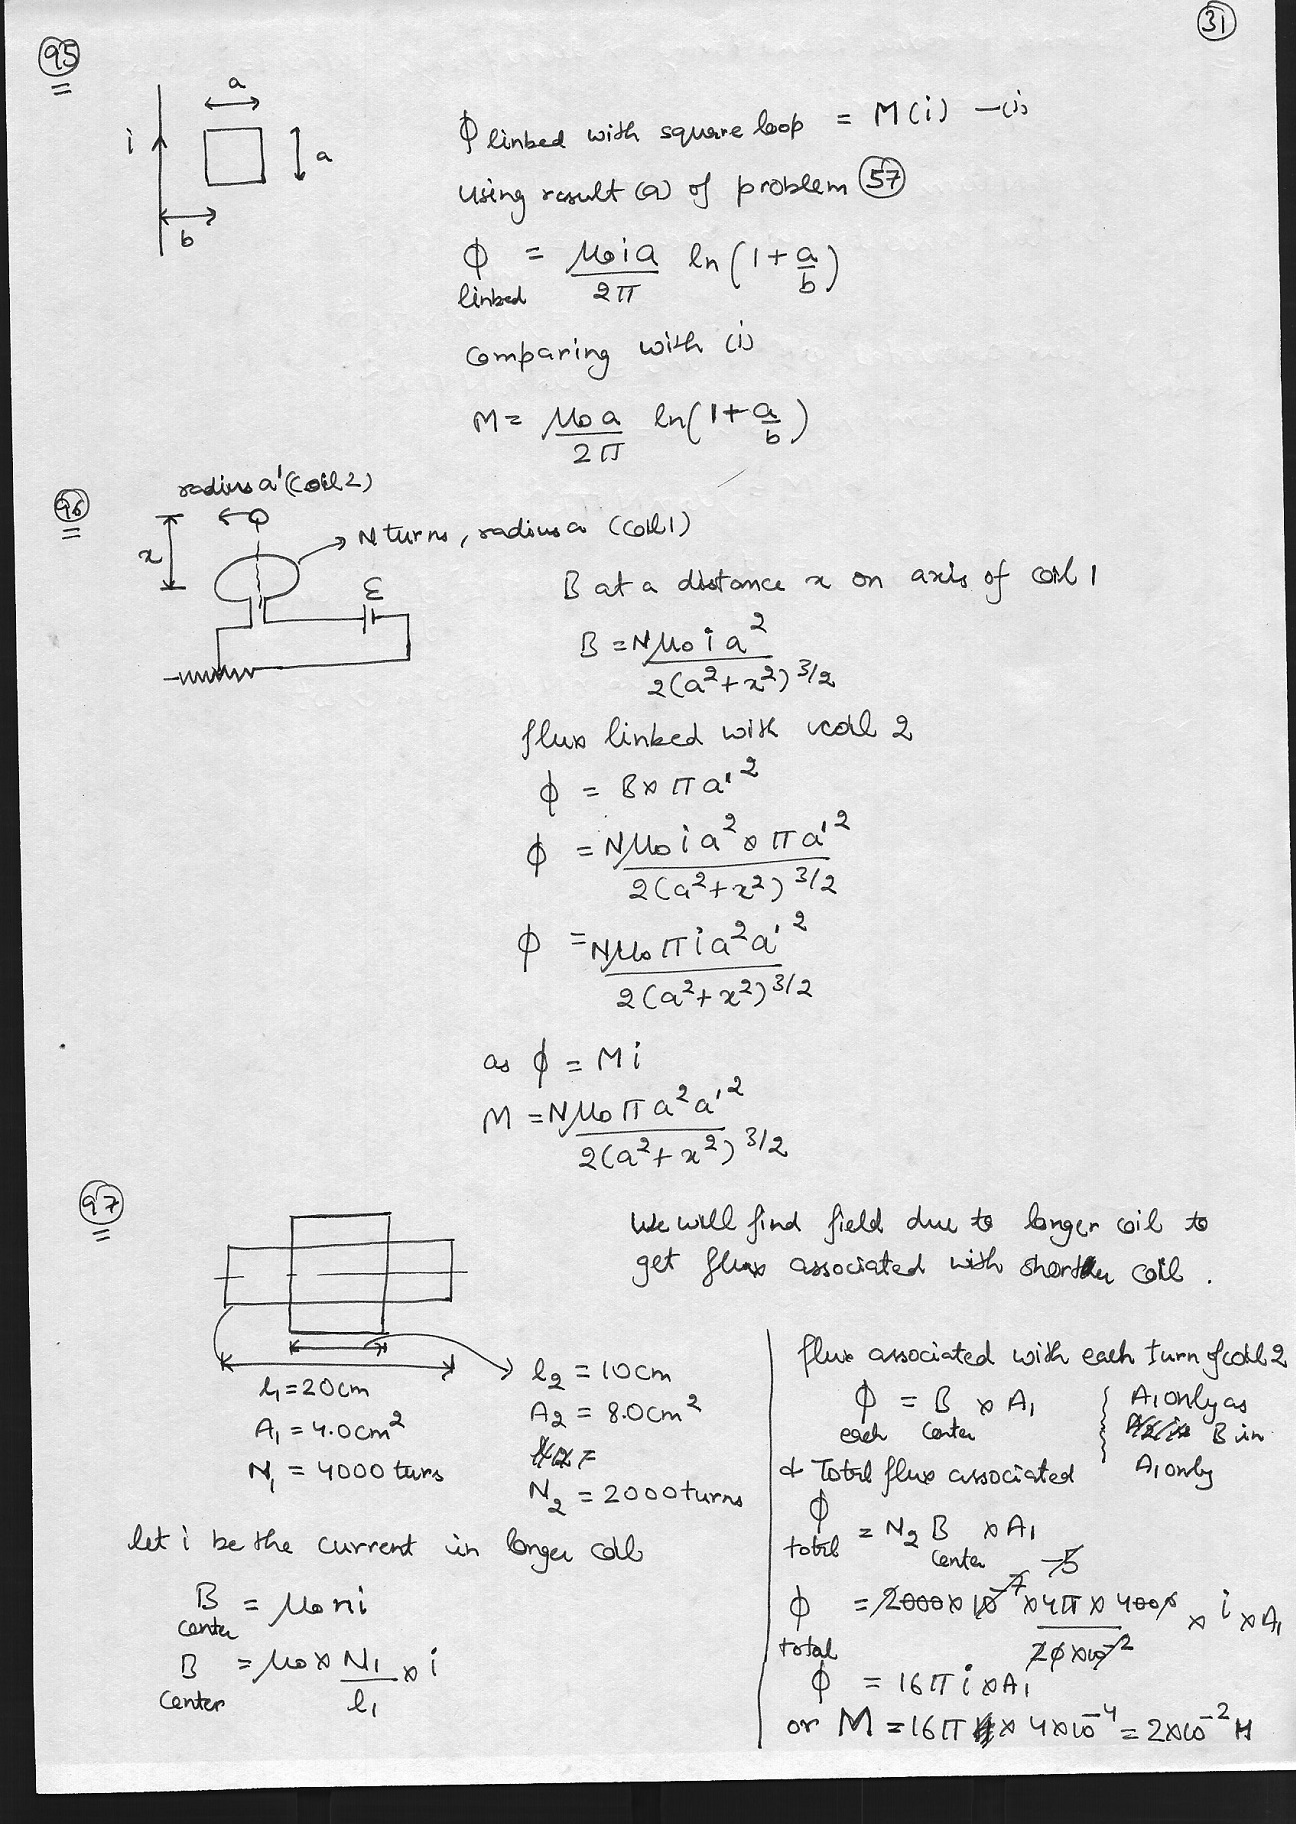 31
95
a
i
a
b
ϕ linked with square loop = M(i) —(i)
using result (a) of problem 57
ϕ linked = μ₀ia/2π ln(1+a/b)
comparing with (i)
M = μ₀a/2π ln(1+a/b)
96
radius a' (coil 2)
x
N turns, radius a (coil 1)
ε
B at a distance x on axis of coil 1
B = Nμ₀ia²/2(a²+x²)^3/2
flux linked with coil 2
ϕ = B×πa'²
ϕ = Nμ₀ia²×πa'²/2(a²+x²)^3/2
ϕ = Nμ₀πia²a'²/2(a²+x²)^3/2
as ϕ = Mi
M = Nμ₀πa²a'²/2(a²+x²)^3/2
97
We will find field due to longer coil to
get flux associated with shorter coil.
l₁=20cm
A₁=4.0cm²
N₁ = 4000 turs
l₂ = 10cm
A₂ = 8.0cm²
N₂ = 2000turns
let i be the current in longer coil
B center = μ₀ni
B center = μ₀×N₁/l₁×i
flux associated with each turn of coil 2
ϕ each = B center ×A₁
A₁ only as
B in
A₁ only
& Total flux associated
ϕ total = N₂ B center ×A₁
-5
ϕ total = 2000×10⁻⁷×4π×4000/20×10⁻² × i×A₁
ϕ = 16πi×A₁
or M = 16π × 4×10⁻⁴ = 2×10⁻² H